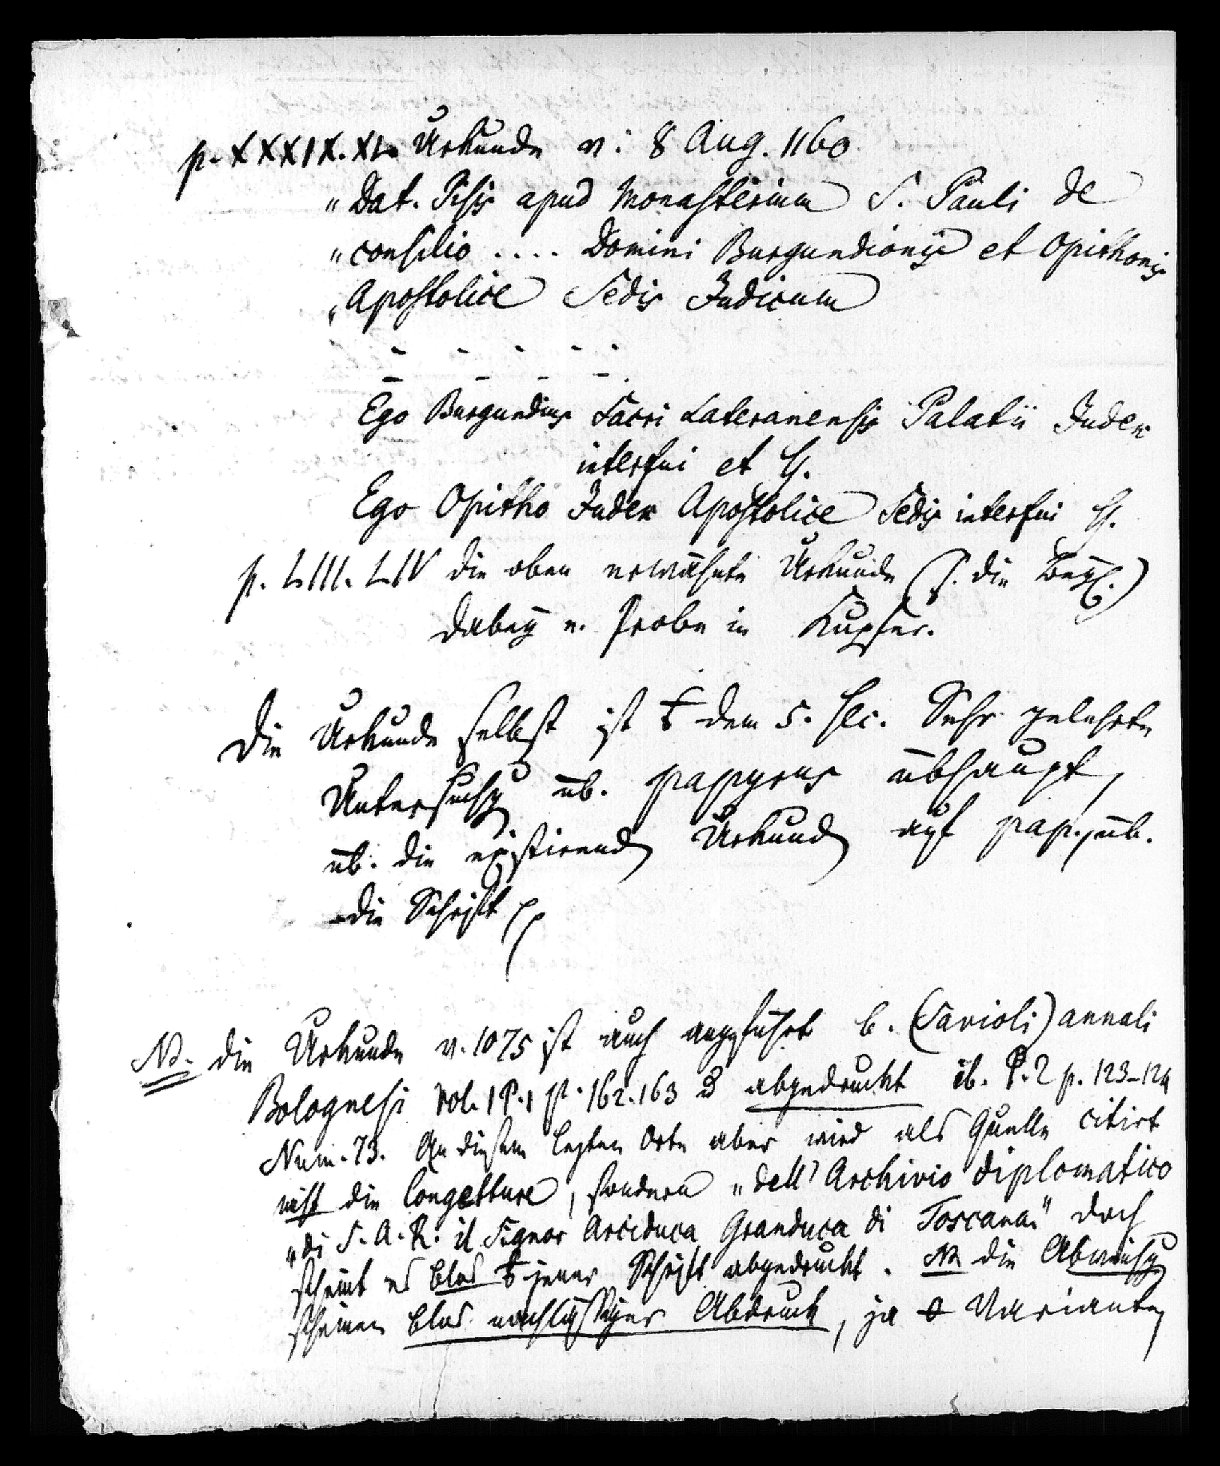 p. XXXIX. XL. Urkunde v: 8 Aug. 1160
„Dat. Pisis apud Monasterium S. Pauli de
„consilio .... Domini Burgundionis et Opithonis
„Apostolice Sedis Judicum
- - - - -
- - - -
Ego Burgundius Sacri Lateranensis Palatii Judex
interfui et
Ego Opitho Judex Apostolice Sedis interfui
p. LIII. LIV die oben erwähnte Urkunde (s. die Beyl.)
dabey e. Probe in Kupfer.
Die Urkunde selbst ist dem 5. sec. Sehr gelehrte
Untersuchg üb. papyrus übhaupt,
üb. die existirend Urkund auf pap., üb.
die Schrift
NB. die Urkunde v. 1075 ist auch angeführt b. (Savioli) annali
Bolognesi Vol. 1 P. 1 p. 162. 163 & abgedruckt ib. P. 2 p. 123-124
Num. 73. An diesem lezten Orte aber wird als Quelle citirt
nicht die Congetture, sondern „dell' Archivio diplomatico
„di S. A. R. il Signor Arciduca Granduca di Toscana." doch
scheint es blos jener Schrift abgedruckt. NB die Abweichg
scheinen blos nachlässiger Abdruck, ja Variant